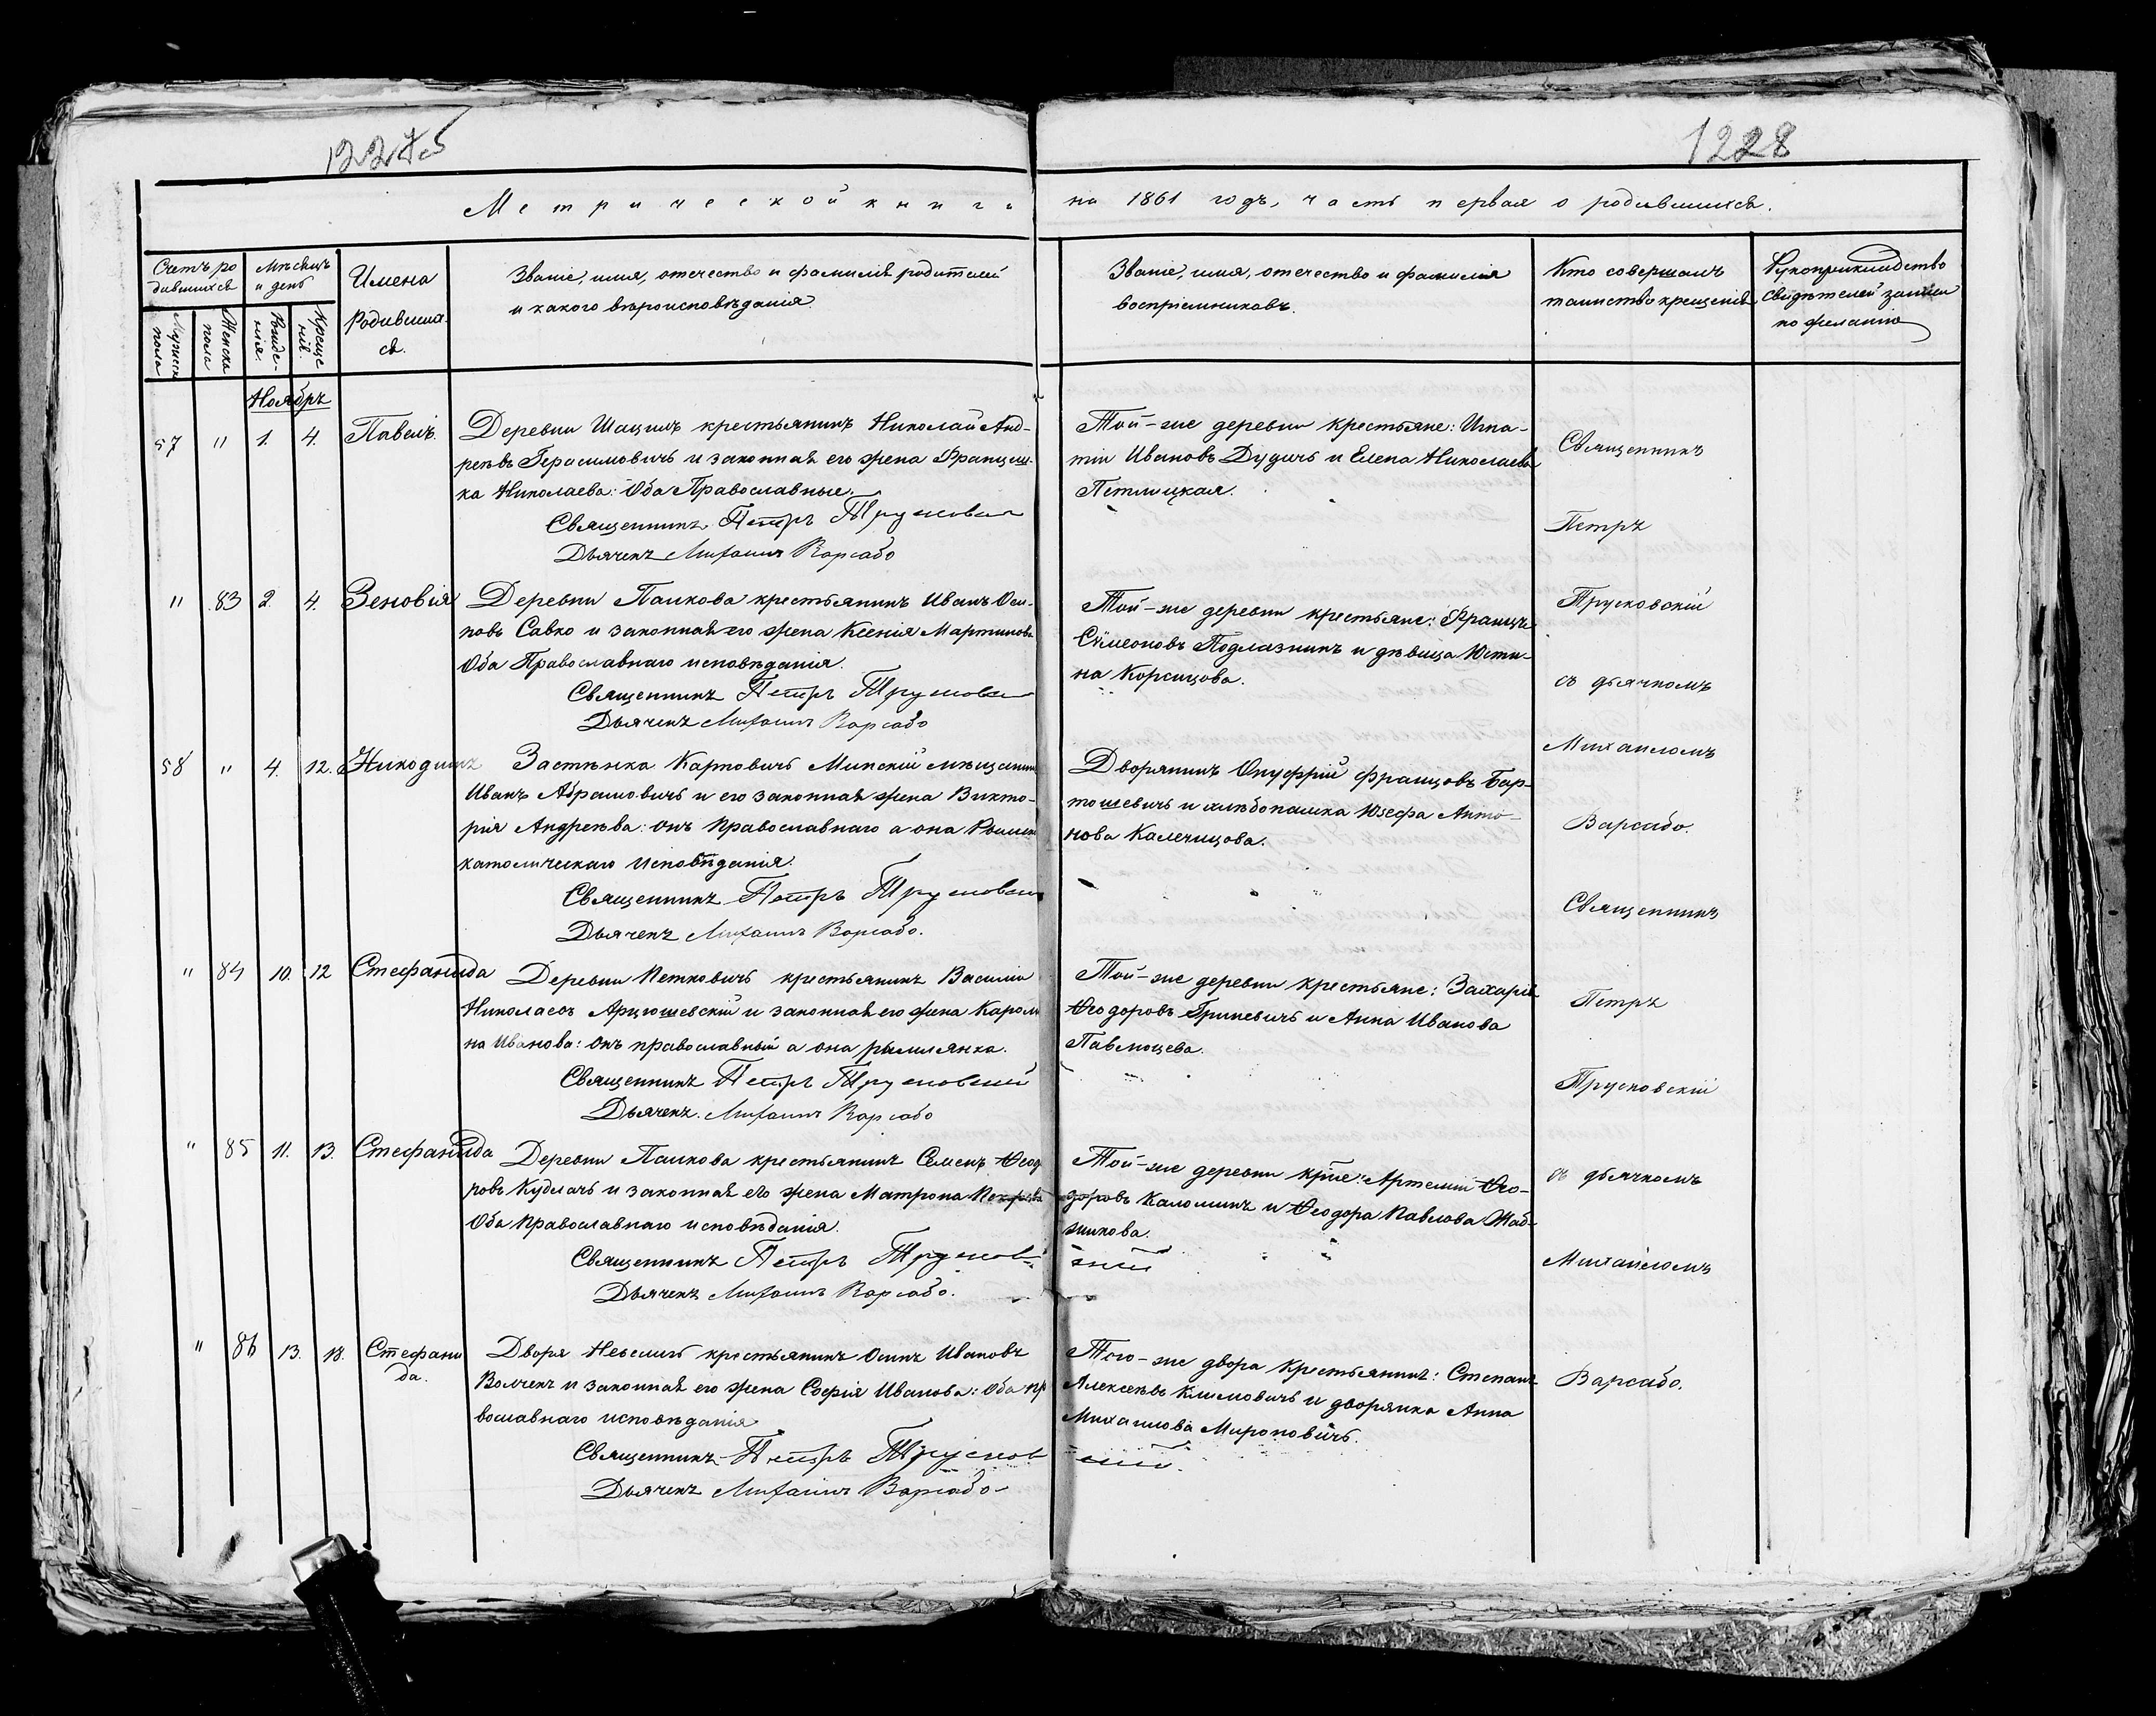 1228
Метрической книги на 1861 годъ, часть первая о родившихся.
Счетъ ро
дившихся
Мѣсяцъ
и день
Имена
Родившия
ся.
Званіе, имя, отечество и фамилія родителей
и какого вѣроисповѣданія
Званіе, имя, отечество и фамилія
воспріемниковъ.
Кто совершалъ
таинство крещенія
Рукоприкладство
свидѣтелей записи
по желанію
Мужеск
пола
Женска
пола
Рожде-
нія.
Креще
нія.
Ноябрь
57 " 1. 4. Павелъ.
Деревни Шацилъ крестьянинъ Николай Анд-
реевъ Герасимовичъ и законная его жена Франциш-
ка Николаева: Оба Православные.
Священникъ Петръ
Дьячекъ Михаилъ Варсабо
Той-же деревни крестьяне: Игна-
тій Ивановъ Дудичъ и Елена Николаева
Петлицкая.
" 83 2. 4. Зеновія
Деревни Палкова крестьянинъ Иванъ Оси-
повъ Савко и законная его жена Ксенія Мартинова
Оба Православнаго исповѣданія.
Священникъ Петръ
Дьячекъ Михаилъ Варсабо
Той-же деревни крестьяне: Францъ
Сѵмеоновъ Подлазникъ и дѣвица Юсти-
на Корсицова.
58 " 4. 12. Никодимъ
Застѣнка Карповичъ Минскій мѣщанинъ
Иванъ Абрамовичъ и его законная жена Викто-
рія Андреева: онъ Православнаго а она Римско
католическаго исповѣданія.
Священникъ Петръ
Дьячекъ Михаилъ Варсабо.
Дворянинъ Онуфрій Францовъ Бар-
тошевичъ и хлѣбопашка Юзефа Анто-
нова Калечицова.
" 84 10. 12 Стефанида
Деревни Петковичъ крестьянинъ Василій
Николаевъ Арцюшевскій и законная его жена Кароли
на Иванова: онъ православный а она римлянка.
Священникъ Петръ Трусковскій
Дьячекъ. Михаилъ Варсабо
Той-же деревни крестьяне: Захарій
Ѳеодоровъ Гриневичъ и Анна Иванова
Павлюцева.
" 85 11. 13. Стефанида
Деревни Палкова крестьянинъ Семенъ Ѳеодо
ровъ Кудлачъ и законная его жена Матрона
Оба Православнаго исповѣданія.
Священникъ Петръ Трусковскій
Дьячекъ Михаилъ Варсабо.
Той-же деревни крстне: Артемій Ѳео-
доровъ Каломинъ и Ѳеодора Павлова
" 86 13. 18. Стефани
да.
Двора Невеличъ крестьянинъ Осипъ Ивановъ
Волчекъ и законная его жена Софія Иванова: Оба пр
вославнаго исповѣданія
Священникъ Петръ Трусковскій.
Дьячекъ Михаилъ Варсабо
Того-же двора Крестьянинъ: Степанъ
Алексѣевъ Климовичъ и дворянка Анна
Михаилова Мироновичъ.
Священникъ
Петръ
Трусковскій
съ дьячкомъ
Михаиломъ
Варсабо.
Священникъ
Петръ
Трусковскій
съ дьячкомъ
Михаиломъ
Варсабо.